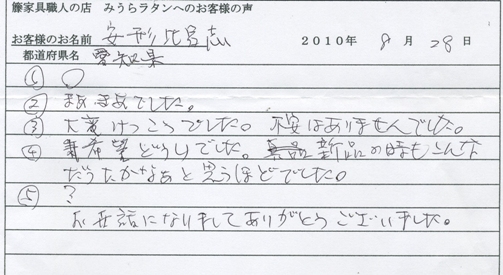 籐家具職人の店 みうらラタンへのお客様の声
お客様のお名前 安形 比呂志 2010年 8月 28日
都道府県名 愛知県
① ○
② まあまあでした。
③ 大変けっこうでした。 不安はありませんでした。
④ 希望どうりでした。 新品の時もこんな
だったかなあと思うほどでした。
⑤ ?
お世話になりましてありがとうございました。